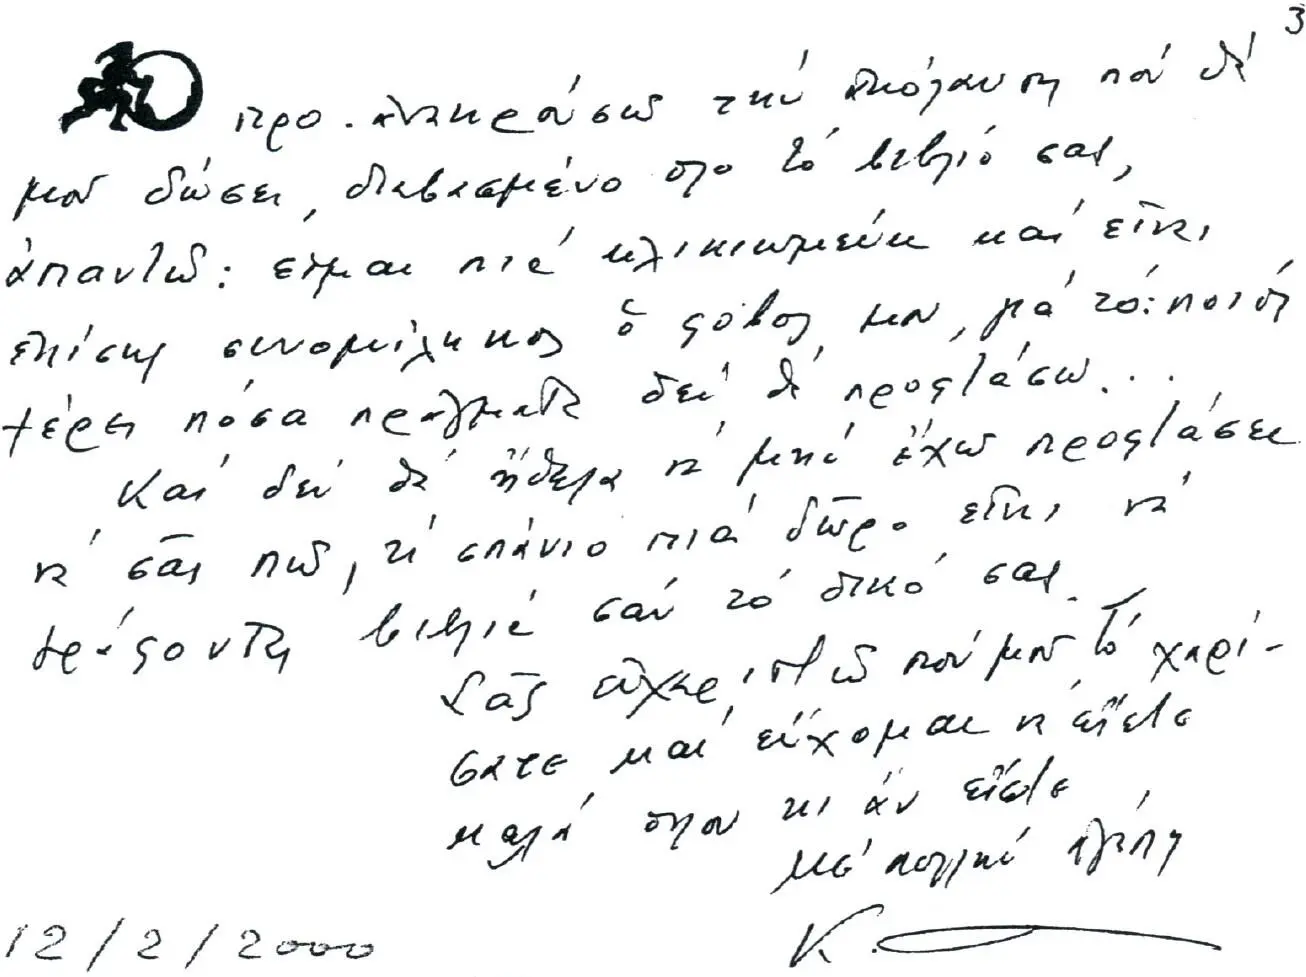 3
προ. ἀνακρούσω τήν ἀπόλαυση πού θά
μοῦ δώσει, διαβασμένο ὅλο τό βιβλίο σας,
ἀπαντῶ: εἶμαι πιά ἡλικιωμένη καί εἶναι
ἐπίσης συνομήλικος ὁ φόβος μου, γιά τό: ποιός
ξέρει πόσα πράγματα δέν θά προφτάσω...
Καί δέν θά ἤθελα νά μήν ἔχω προφτάσει
νά σᾶς πῶ, τί σπάνιο πιά δῶρο εἶναι νά
γράφονται βιβλία σάν τό δικό σας.
Σᾶς εὐχαριστῶ πού μοῦ τό χαρί-
σατε καί εὔχομαι νά εἶστε
καλά ὅπου κι ἄν εἶστε
Μέ πολλήν ἀγάπη
Κ.
12/2/2000